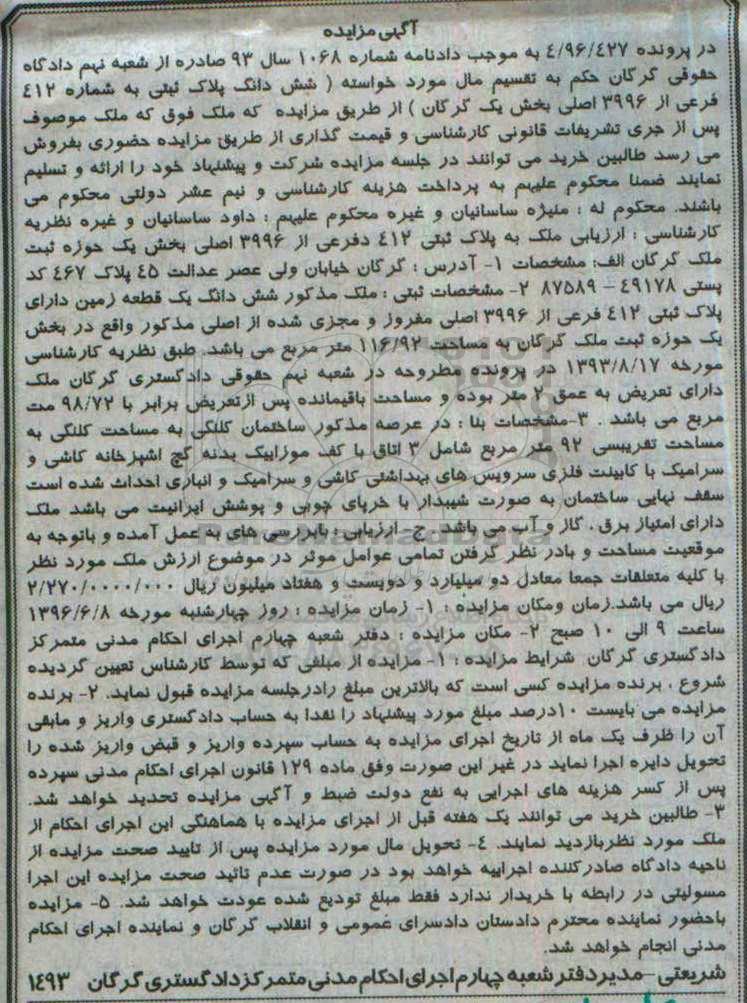 آگهی مزایده
در پرونده ٤/٩٦/٤٢٧ به موجب دادنامه شماره ١٠٦٨ سال ٩٣ صادره از شعبه نهم دادگاه
حقوقی گرگان حکم به تقسیم مال مورد خواسته ( شش دانگ پلاک ثبتی به شماره ٤١٢
فرعی از ٣٩٩٦ اصلی بخش یک گرگان ) از طریق مزایده که ملک فوق که ملک موصوف
پس از جری تشریفات قانونی کارشناسی و قیمت گذاری از طریق مزایده حضوری بفروش
می رسد طالبین خرید می توانند در جلسه مزایده شرکت و پیشنهاد خود را ارائه و تسلیم
نمایند ضمنا محکوم علیهم به پرداخت هزینه کارشناسی و نیم عشر دولتی محکوم می
باشند. محکوم له : منیژه ساسانیان و غیره محکوم علیهم : داود ساسانیان و غیره نظریه
کارشناسی : ارزیابی ملک به پلاک ثبتی ٤١٢ دفرعی از ٣٩٩٦ اصلی بخش یک حوزه ثبت
ملک گرگان الف: مشخصات ١- آدرس : گرگان خیابان ولی عصر عدالت ٤٥ پلاک ٤٦٧ کد
پستی ٤٩١٧٨ – ٨٧٥٨٩ ٢- مشخصات ثبتی : ملک مذکور شش دانگ یک قطعه زمین دارای
پلاک ثبتی ٤١٢ فرعی از ٣٩٩٦ اصلی مفروز و مجزی شده از اصلی مذکور واقع در بخش
یک حوزه ثبت ملک گرگان به مساحت ١١٦/٩٢ متر مربع می باشد. طبق نظریه کارشناسی
مورخه ١٣٩٣/٨/١٧ در پرونده مطروحه در شعبه نهم حقوقی دادگستری گرگان ملک
دارای تعریض به عمق ٢ متر بوده و مساحت باقیمانده پس ازتعریض برابر با ٩٨/٧٢ مت
مربع می باشد . ٣-مشخصات بنا : در عرصه مذکور ساختمان کلنگی به مساحت کلنگی به
مساحت تقریبسی ٩٢ متر مربع شامل ٣ اتاق با کف موزاییک بدنه گچ اشپزخانه کاشی و
سرامیک با کابینت فلزی سرویس های بهداشتی کاشی و سرامیک و انباری احداث شده است
سقف نهایی ساختمان به صورت شیبدار با خرپای چوبی و پوشش ایرانیت می باشد ملک
دارای امتیاز برق ، گاز و آب می باشد . ج- ارزیابی : بابررسی های به عمل آمده و باتوجه به
موقعیت مساحت و بادر نظر گرفتن تمامی عوامل موثر در موضوع ارزش ملک مورد نظر
با کلیه متعلقات جمعا معادل دو میلیارد و دویست و هفتاد میلیون ریال ٢/٢٧٠/٠٠٠٠/٠٠٠
ریال می باشد.زمان ومکان مزایده : ١- زمان مزایده : روز چهارشنبه مورخه ١٣٩٦/٦/٨
ساعت ٩ الی ١٠ صبح ٢- مکان مزایده : دفتر شعبه چهارم اجرای احکام مدنی متمرکز
دادگستری گرگان شرایط مزایده : ١- مزایده از مبلغی که توسط کارشناس تعیین گردیده
شروع ، برنده مزایده کسی است که بالاترین مبلغ رادرجلسه مزایده قبول نماید. ٢- برنده
مزایده می بایست ١٠درصد مبلغ مورد پیشنهاد را نقدا به حساب دادگستری واریز و مابقی
آن را ظرف یک ماه از تاریخ اجرای مزایده به حساب سپرده واریز و قبض واریز شده را
تحویل دایره اجرا نماید در غیر این صورت وفق ماده ١٢٩ قانون اجرای احکام مدنی سپرده
پس از کسر هزینه های اجرایی به نفع دولت ضبط و آگهی مزایده تحدید خواهد شد.
٣- طالبین خرید می توانند یک هفته قبل از اجرای مزایده با هماهنگی این اجرای احکام از
ملک مورد نظربازدید نمایند. ٤- تحویل مال مورد مزایده پس از تایید صحت مزایده از
ناحیه دادگاه صادرکننده اجراییه خواهد بود در صورت عدم تائید صحت مزایده این اجرا
مسولیتی در رابطه با خریدار ندارد فقط مبلغ تودیع شده عودت خواهد شد. ٥- مزایده
باحضور نماینده محترم دادستان دادسرای عمومی و انقلاب گرگان و نماینده اجرای احکام
مدنی انجام خواهد شد.
شریعتی –مدیردفتر شعبه چهارم اجرای احکام مدنی متمرکزدادگستری گرگان ١٤٩٣